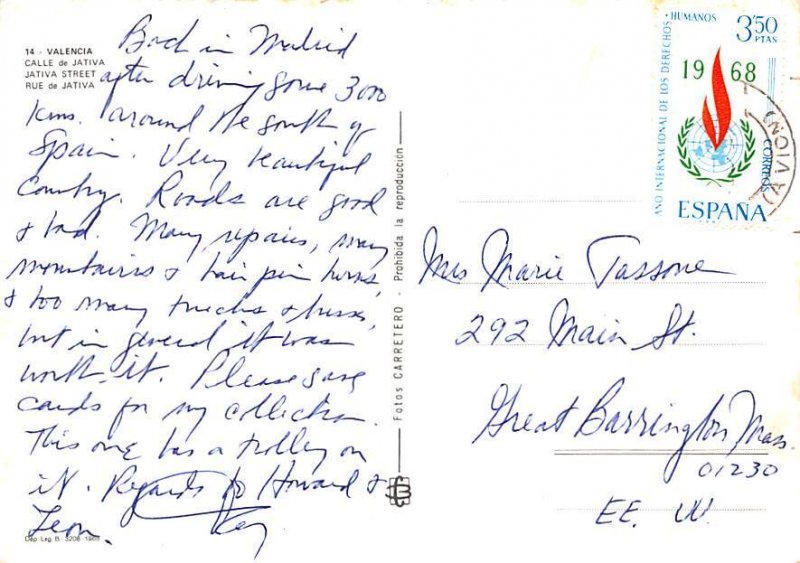 14 - VALENCIA
CALLE de JATIVA
JATIVA STREET
RUE de JATIVA
Back in Madrid
after driving some 3000
kms. around the south of
Spain. Very beautiful
Country. Roads are good
& bad. Many repairs, many
mountains & hair pin turns,
& too many trucks & buses,
but in general it was
worth it. Please save
cards for my collection.
This one has a trolley on
it. Regards to Howard &
Leon.
Dep. Leg. B.
Fotos CARRETERO - Prohibida la reproducción
AÑO INTERNACIONAL DE LOS DERECHOS HUMANOS
3'50
PTAS
1968
CORREOS
ESPAÑA
(AVION)
Mrs Marie Tassone
292 Main St.
Great Barrington Mass.
01230
EE. UU.